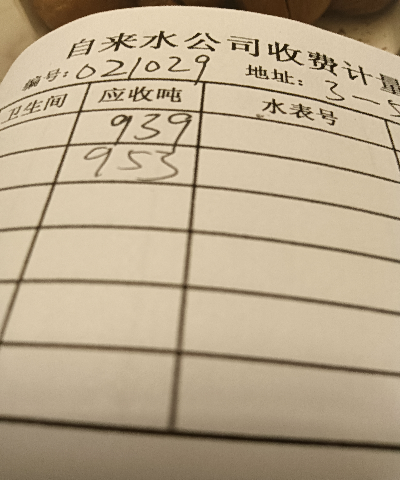 自来水公司收费计量
编号: 021029 地址: 3-5
卫生间 应收吨 水表号
939
953